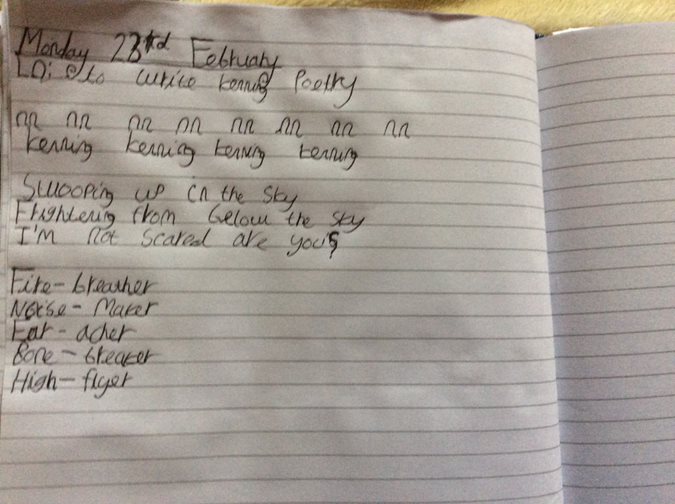 Monday 23rd February
LO: to write kenning Poetry
nn nn nn nn nn nn nn nn
kenning kenning kenning kenning
Swooping up in the sky
Frightening from below the sky
I'm not scared are you?
Fire-breather
Noise-Maker
Ear-acher
Bone-breaker
High-flyer